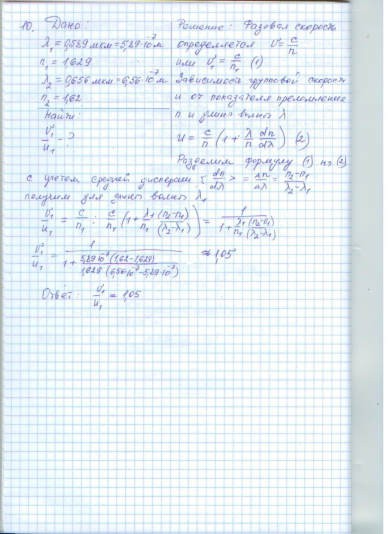 10. Дано:
λ₁ = 0,589 мкм = 5,89·10⁻⁷ м
n₁ = 1,629
λ₂ = 0,656 мкм = 6,56·10⁻⁷ м
n₂ = 1,62
Найти
V₁/u₁ - ?
Решение: Фазовая скорость
определяется V = c/n
или V₁ = c/n₁ (1)
Зависимость групповой скорости
u от показателя преломления
n и длины волны λ
u = c/n (1 + λ/n dn/dλ) (2)
Разделим формулу (1) на (2)
с учетом средней дисперсии < dn/dλ > = Δn/Δλ = (n₂-n₁)/(λ₂-λ₁)
получим для длины волны λ₁
V₁/u₁ = c/n₁ : c/n₁ (1 + λ₁(n₂-n₁)/n₁(λ₂-λ₁)) = 1/(1 + λ₁(n₂-n₁)/n₁(λ₂-λ₁))
V₁/u₁ = 1/(1 + 5,89·10⁻⁷(1,62-1,629)/1,629(6,56·10⁻⁷-5,89·10⁻⁷)) ≈ 1,05
Ответ: V₁/u₁ = 1,05